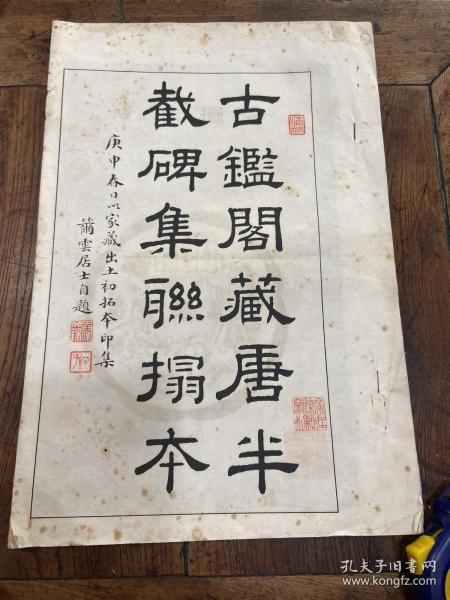 古鑑閣藏唐半
截碑集聯搨本
庚申春日以家藏出土初拓本印集
簫雲居士自題
孔夫子旧书网
www.kongfz.com